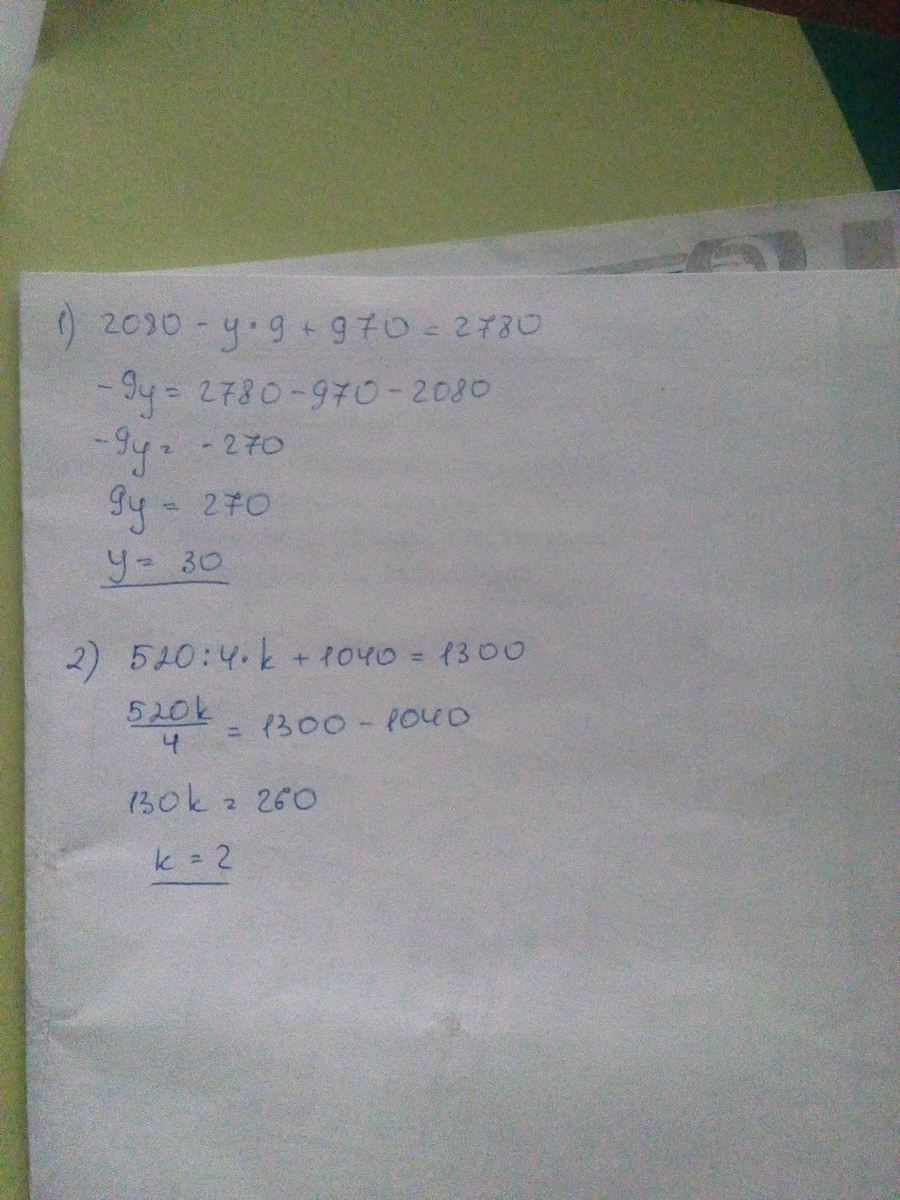 1) 2080 - y · 9 + 970 = 2780
-9y = 2780 - 970 - 2080
-9y = -270
9y = 270
y = 30
2) 520 : 4 · k + 1040 = 1300
520k/4 = 1300 - 1040
130k = 260
k = 2